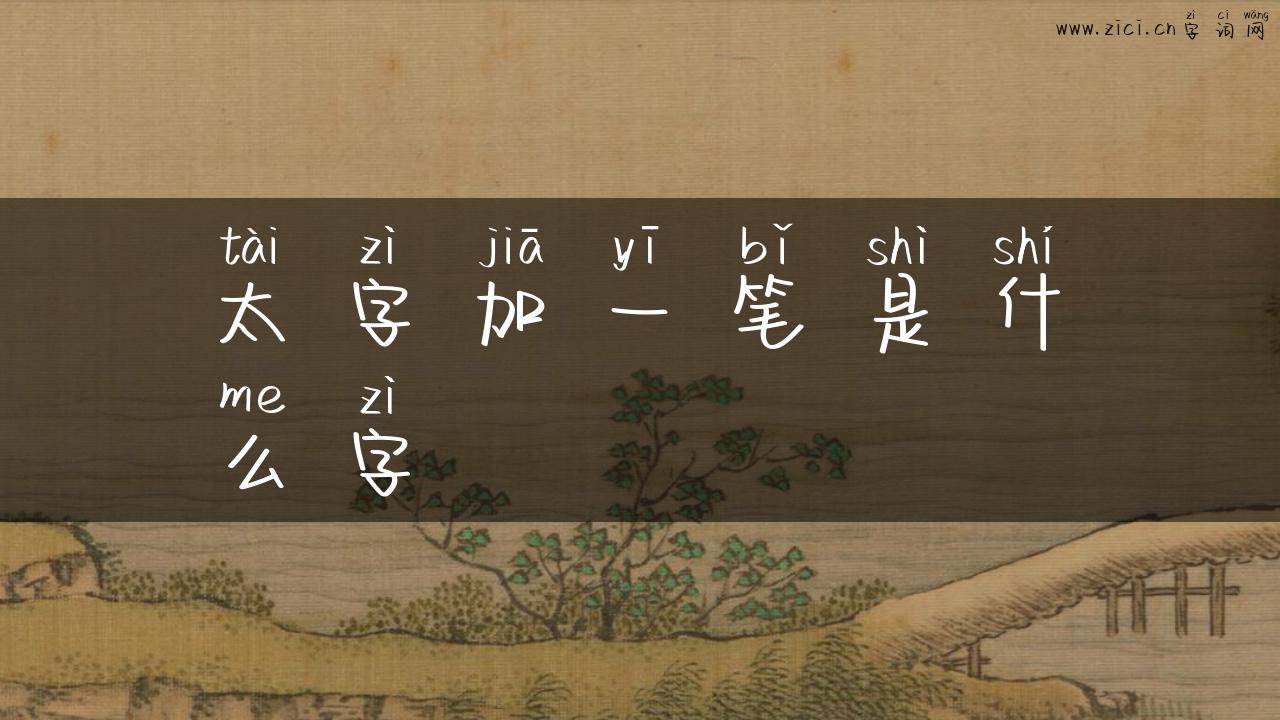 zì cí wǎng
www.zici.cn 字 词 网
tài zì jiā yī bǐ shì shí
太 字 加 一 笔 是 什
me zì
么 字